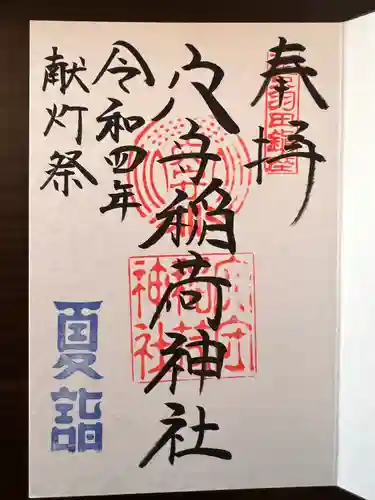 奉拝
羽田鎮座
穴守稲荷神社
穴守稲荷神社
令和四年
献灯祭
夏詣